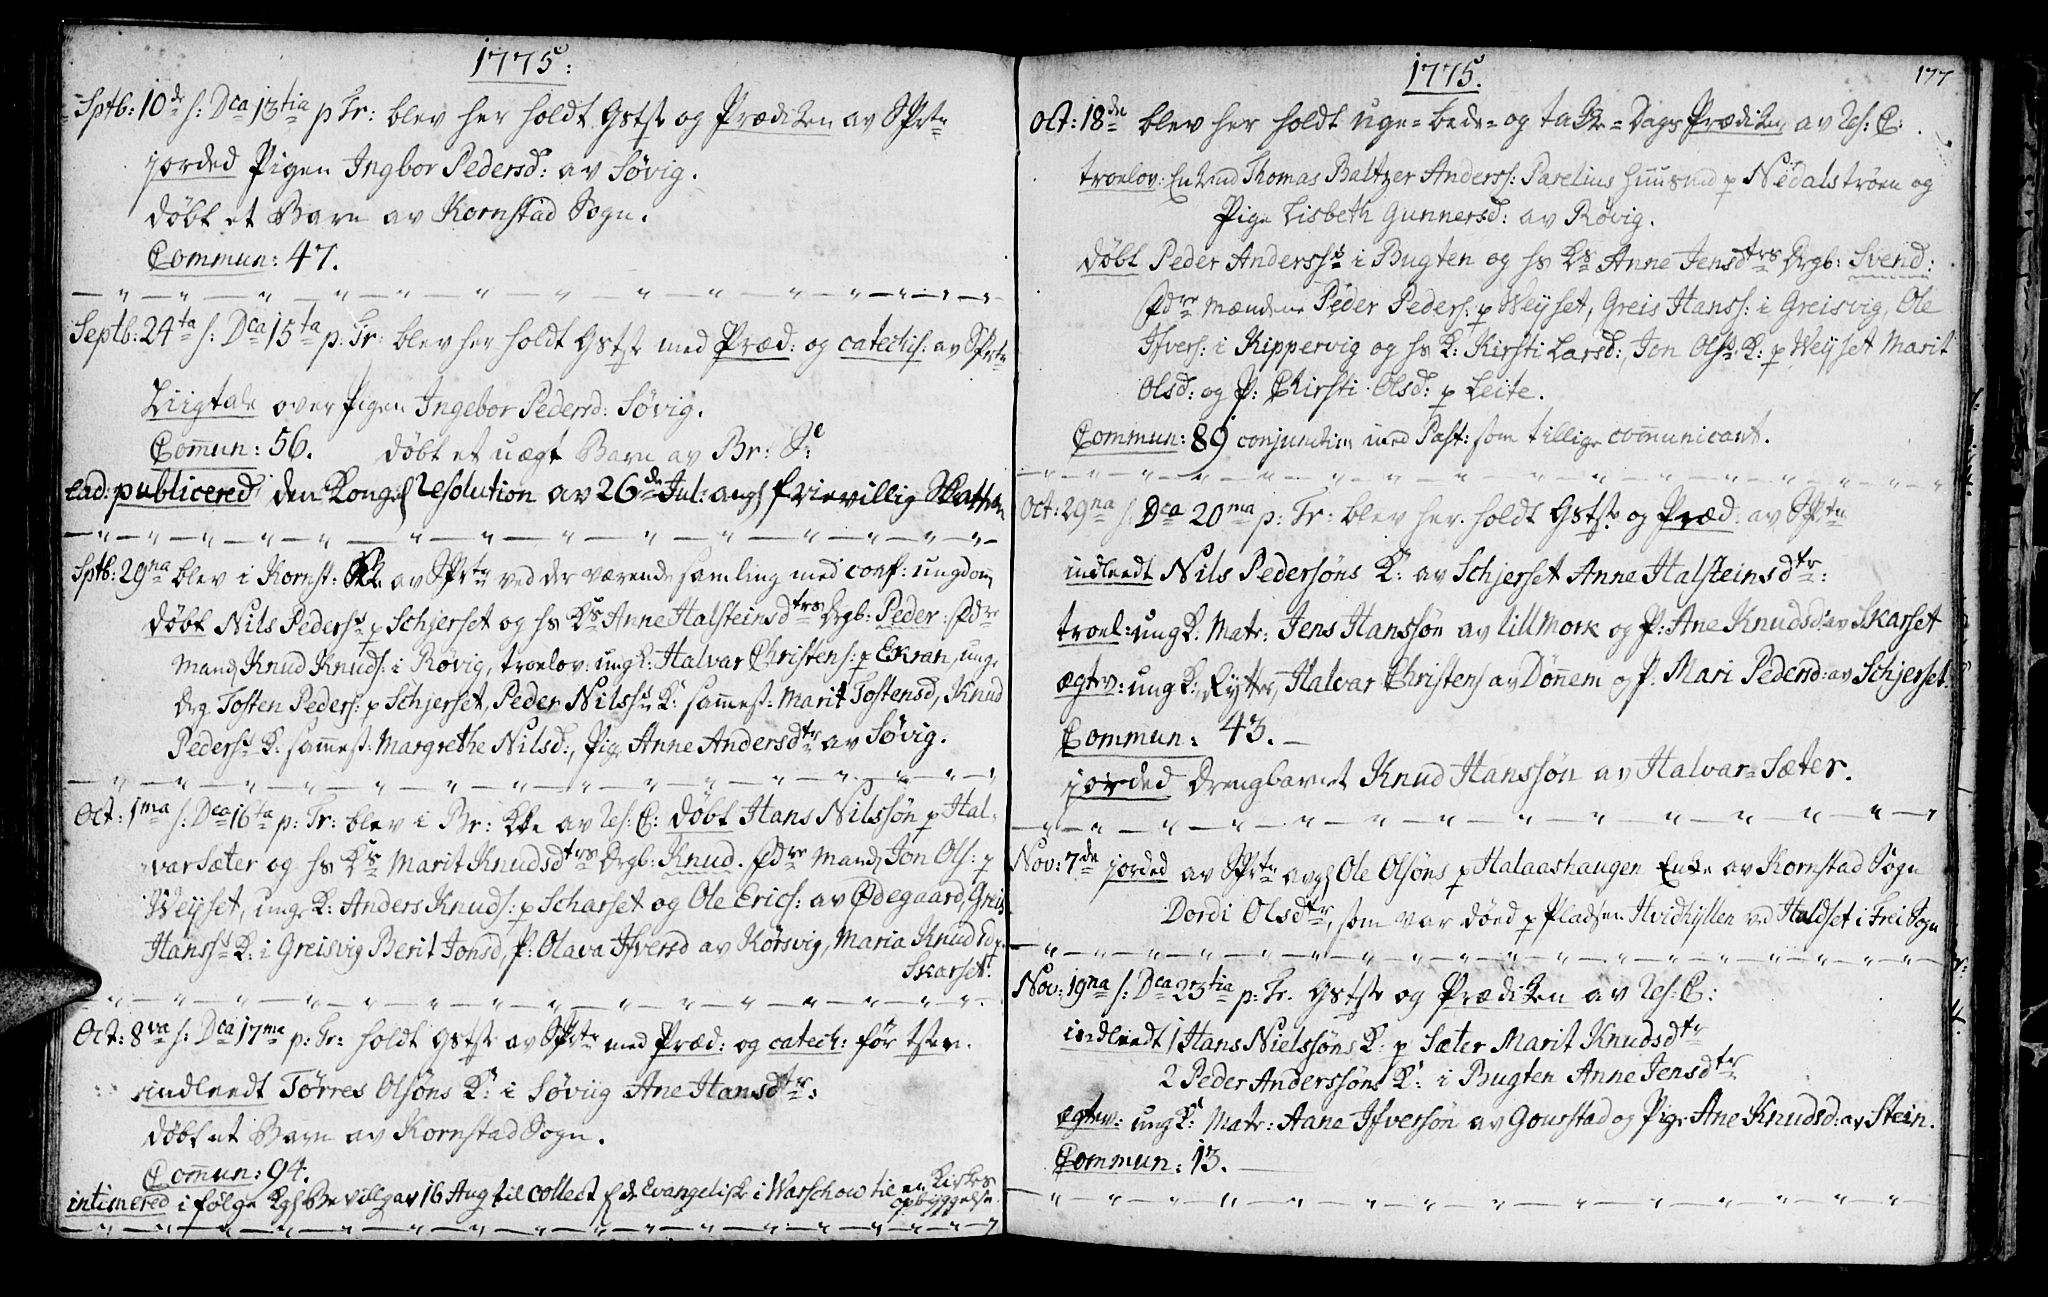 1775:
Sptb: 10de s: Dca 13tia p Tr: blev her holdt Gstst og Prædiken av SPrtn
jorded Pigen Ingbor Pedersd: av Søvig.
døbt et Barn av Kornstad Sogn.
Commun: 47.
Septb: 24ta s: Dca 15ta p: Tr: blev her holdt Gstst med Præd: og catechis: av SPrtn
Liigtale over Pigen Ingebor Pedersd: Søvig.
Comun: 56. døbt et uægt Barn av Br: S:
ead: publicered den Kongel resolution av 26de Jul: ang frievillig Skatten
Sptb: 29na blev i Kornst: Kke av SPrtn ved der værende samling med conf: ungdom
døbt Nils Peders: p Schjerset og hs Ks Anne Halsteinsdtrs Drgb: Peder: fdre
Mand Knud Knuds: i Røvig, troelov: ungK: Halvar Christens: p Ekran, unge
Drg Tosten Peders: p Schjerset, Peder Nilss: K: samest: Marit Tostensd, Knud
Peders: K: samest: Margrethe Nilsd:, Pige Anne Andersdtr av Søvig.
Oct: 1ma s: Dca 16ta p: Tr: blev i Br: Kke av res: C: døbt Hans Nilssøn p Hal-
var Sæter og hs Ks Marit Knudsdtrs Drgb: Knud. fdre Mand Jon Ols: p
Weyset, unge K: Anders Knuds: p Scharset og Ole Erics: av Ødegaard, Greis
Hanss: K: i Greisvig Berit Jonsd, P: Olava Ifversd av Kørsvig, Maria Knudsd p
Skarset.
Oct: 8va s: Dca 17ma p: Tr: holdt Gstst av SPrtn med Præd: og catech: før tsten.
indleedt Tørres Olsøns K: i Søviig Ane Hansdtr:
døbt et Barn av Kornstad Sogn.
Comun: 94.
intimered i følge Kgl Bevillg av 16 Aug til collect f de Evangeliske i Warschow til en Kirkes
opbyggelse
1775.
177
Oct: 18de blev her holdt uge-bede- og takke-Dags Prædiken av res: C:
troelov: Enkmd Thomas Baltzer Anderss: Parelius huusmd p Nedalstrøen og
Pige Lisbeth Gunnersd: av Røvig.
døbt Peder Anderss: i Bugten og hs Ks Anne Jensdtrs Drgb: Svend:
fdre Mændene Peder Peders: p Weyset, Greis Hanss: i Greisvig, Ole
Ifvers: i Kippervig og hs K: Kirsti Larsd:, Jon Ols: K: p Weyset Marit
Olsd: og P: Chirsti Olsd: p Leite.
Commun: 89 conjunctim med Past: som tillige communicant.
Oct: 29na s: Dca 20ma p: Tr: blev her holdt Gstst og Præd: av SPrtn
indleedt Nils Pedersøns K: av Schjerset Anne Halsteinsdtr:
troel: ungK: Matr: Jens Hanssøn av lillMork og P: Ane Knudsd: av Skarset
ægtev: ungK: Rytter, Halvar Christens av Dønnem og P: Mari Pedersd: av Schjerset.
Commun: 43.
jorded Drengbarnet Knud Hanssøn av Halvar-Sæter.
Nov: 7de jorded av SPrtn avg Ole Olsøns p Halaashaugen Enke av Kornstad Sogn
Dordi Olsdtr, som var død p Pladsen Hvidhyllen ved Haldset i Frei Sogn
Nov: 19na s: Dca 23tia p: Tr. Gstst og Prædiken av res: C:
indleedt 1 Hans Nielssøns K: p Sæter Marit Knudsdtr
2 Peder Anderssøns K: i Bugten Anne Jensdtr
ægtev: ungK: Matr: Aane Ifversøn av Gourstad og Pige Ane Knudsd: av Stein.
Commun: 13.